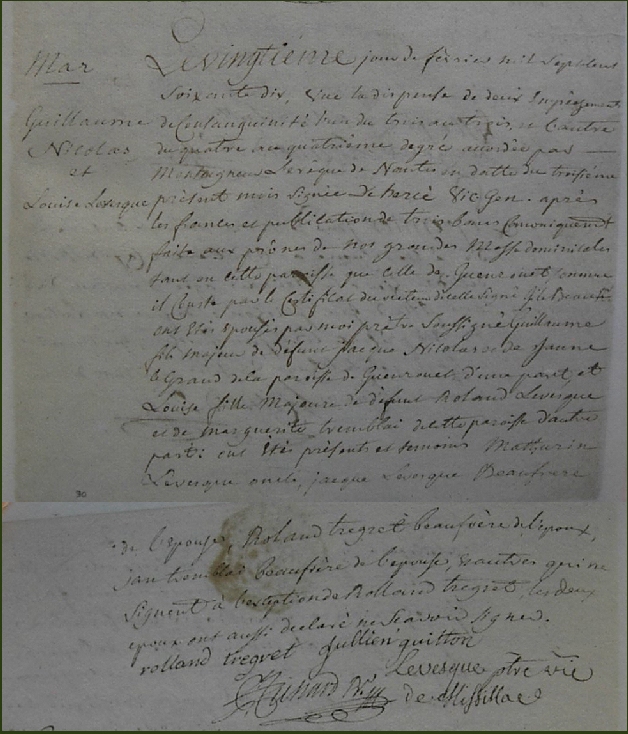 Mar
Guillaume
Nicolas
et
Louise Levesque
Le vingtiéme jour de fevrier mil sept cens
soixante dix, vue la dispense de deux Impechements
de Consanguinité l'un du trois au trois, et l'autre
du quatre au quatrième degré accordée par
Monseigneur L'evèque de Nantes en datte du troisième
présent mois signée De hercé Vic Gen. après
les fiances et publication de trois bans Canoniquement
faite aux prônes de nos grandes Messe dominicales
tant en cette paroisse que celle de Guenrouet comme
il Conste par le Certificat du recteur dicelle signé
ont étés épousés par moi prêtre soussigné Guillaume
fils majeur de défunt jacque Nicolas et de Jeanne
le Grand de la paroisse de Guenrouet d'une part, et
Louise fille Majeure de défunt Roland Levesque
et de marguerite tremblai de cette paroisse d'autre
part: ont étés présents et temoins Mathurin
Levesque oncle, jacque Levesque Beaufrere
30
de l'épouse, Roland tregret beaufrère de l'époux,
jan tremblai beaufrère de l'épouse, & autres qui ne
signent à l'exception de Rolland tregret, les deux
epoux ont aussi declaré ne scavoir signer.
rolland tregret Jullien guitton
Levesque ptre vic
de Missillac